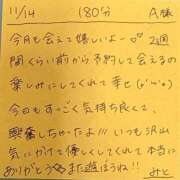 11/14 180分 A様
今月も会えて嬉しいよー♡♡ 2週
間くらい前から予約してくれるの
楽しみにしてくれてて幸せ(´˘`๑)
今日もすっごく気持ち良くて、
興奮しちゃったよ!!! いつも沢山
気にかけて優しくしてくれて本当に
ありがとう また遊ぼうね!!
みと